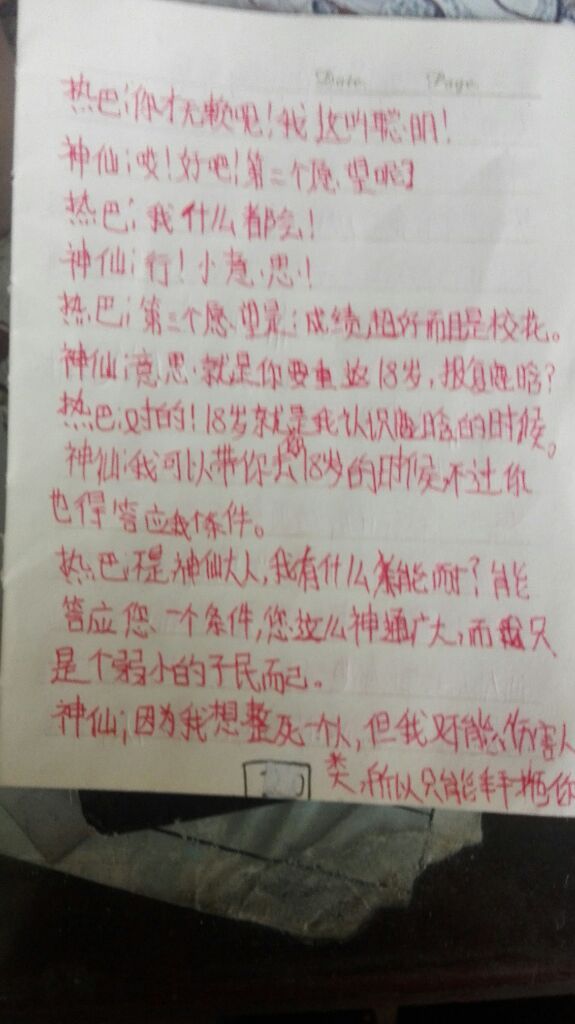 Date Page
热巴;你才无赖呢!我这叫聪明!
神仙;哎!好吧!第二个愿望呢?
热巴;我什么都会!
神仙;行!小意思!
热巴;第三个愿望是;成绩超好而且是校花。
神仙;意思就是你要重返18岁,报复鹿晗?
热巴;对的!18岁就是我认识鹿晗的时候。
神仙;我可以带你去18岁的时候不过你
也得答应我个条件。
热巴;不是,神仙大人,我有什么能耐?能
答应您一个条件,您这么神通广大,而我只
是个弱小的子民而己。
神仙;因为我想整死一个人,但我又不能伤害人
类,所以只能拜托你